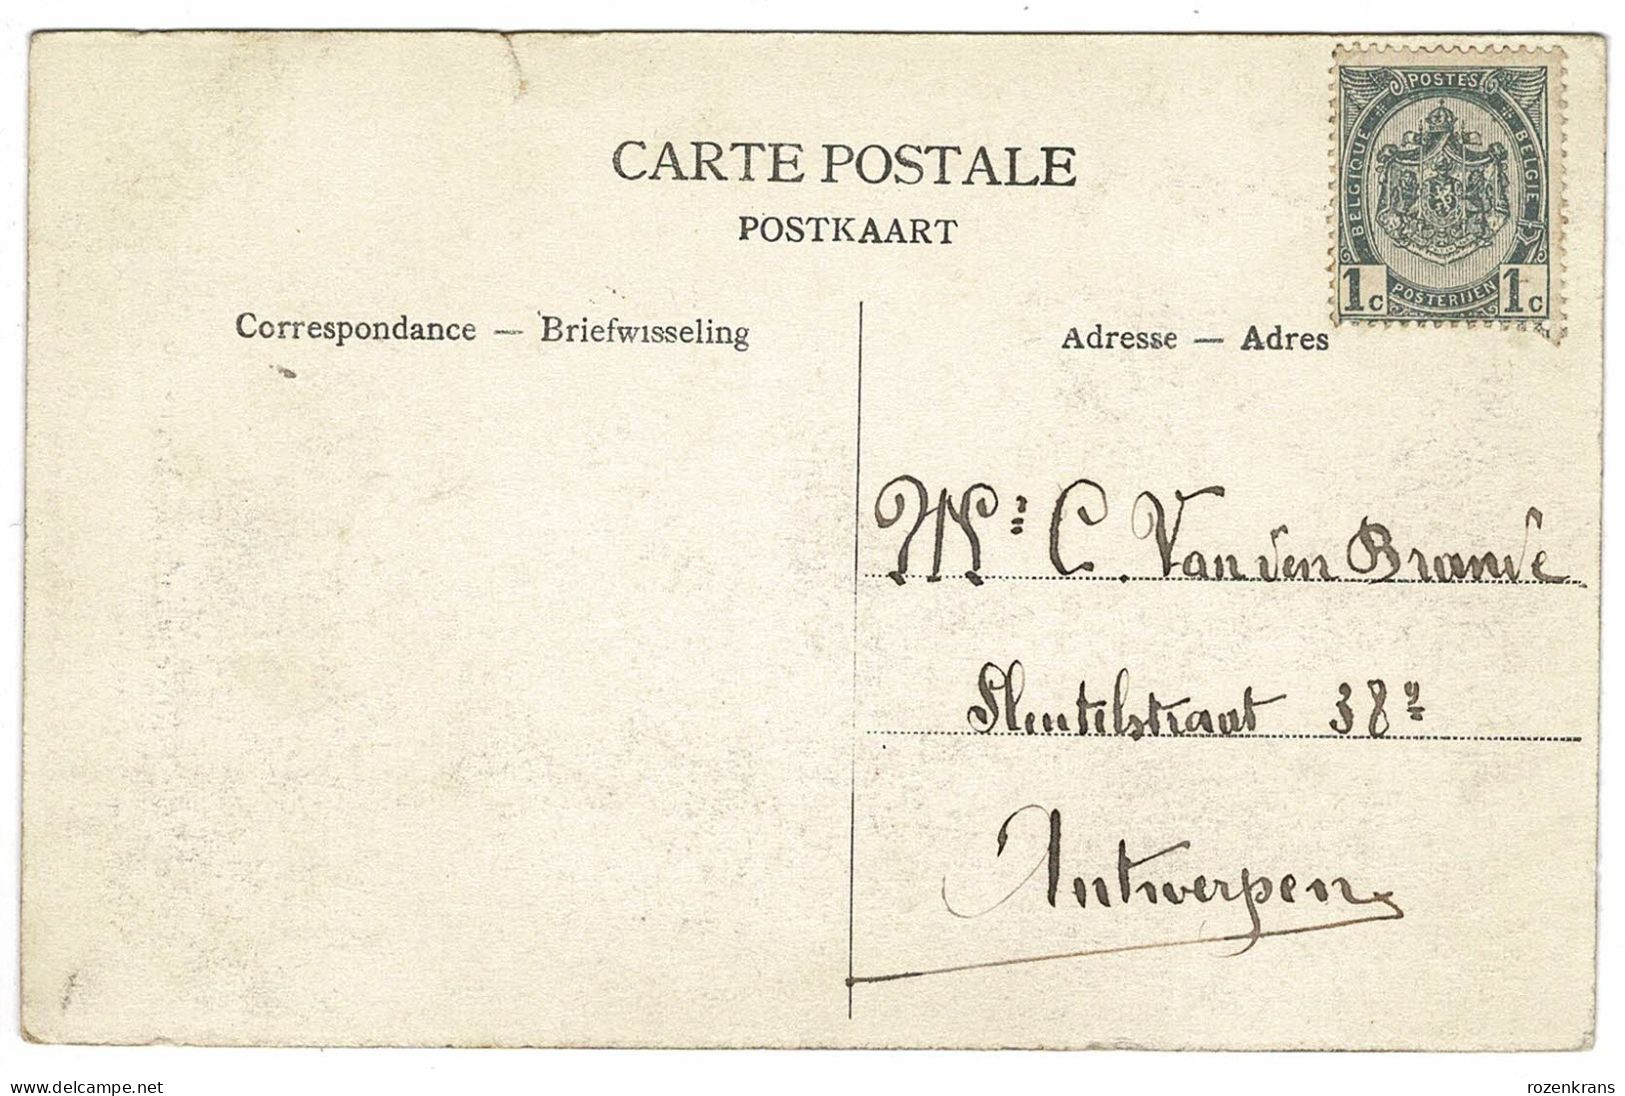 CARTE POSTALE
POSTKAART
POSTES
BELGIQUE
BELGIE
1c POSTERIJEN 1c
Correspondance — Briefwisseling
Adresse — Adres
Mr: C. Van den Brande
Sleutelstraat 38
Antwerpen
www.delcampe.net
rozenkrans